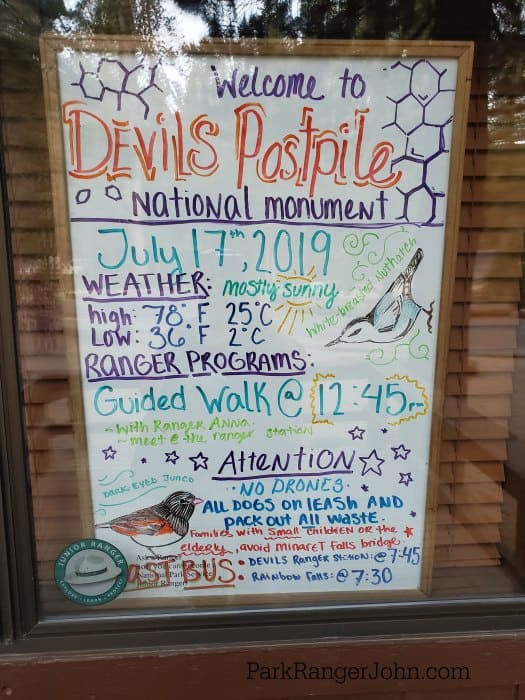 Welcome to
DEVILS Postpile
NATIONAL MONUMENT
July 17th, 2019
WEATHER: mostly sunny
high: 78° F 25°C
LOW: 36° F 2°C
White-breasted Nuthatch
RANGER PROGRAMS:
GUIDED WALK @ 12:45pm
~ WITH RANGER ANNA
~ meet @ the ranger station
ATTENTION
·NO DRONES·
ALL DOGS ON LEASH AND
PACK OUT ALL WASTE.
DARK-EYED JUNCO
Families with small CHILDREN OR the
elderly, avoid MINARET FALLS bridge.
LAST BUS: · DEVILS RANGER STATION: @ 7:45
· RAINBOW FALLS: @ 7:30
JUNIOR RANGER
EXPLORE · LEARN · PROTECT
Ask a Ranger
National Park Service
Junior Ranger!
ParkRangerJohn.com